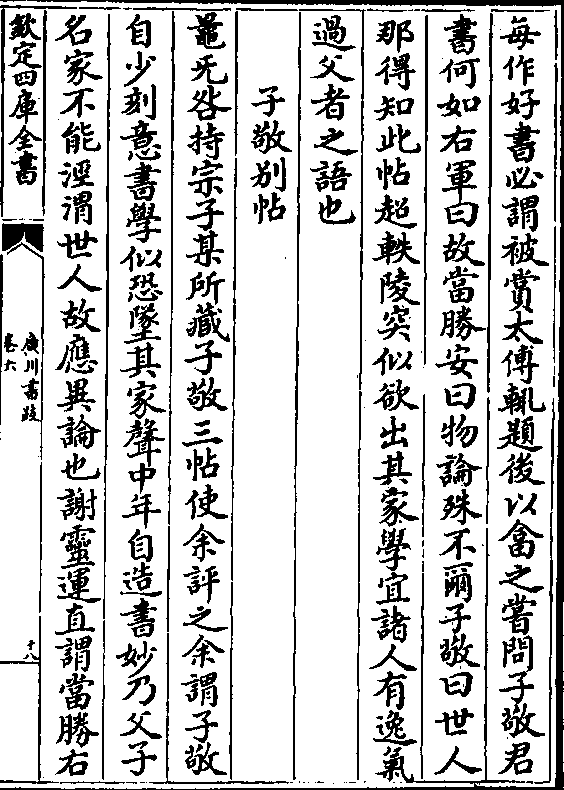 每作好書必謂被賞太傅輒題後以畣之嘗問子敬君
書何如右軍曰故當勝安曰物論殊不爾子敬曰世人
那得知此帖超軼陵突似欲出其家學宜諸人有逸氣
過父者之語也
子敬别帖
鼂旡咎持宗子某所藏子敬三帖使余評之余謂子敬
自少刻意書學似恐墜其家聲中年自造書妙乃父子
名家不能涇渭世人故應異論也謝靈運直謂當勝右
欽定四庫全書
廣川書跋
卷六
十八